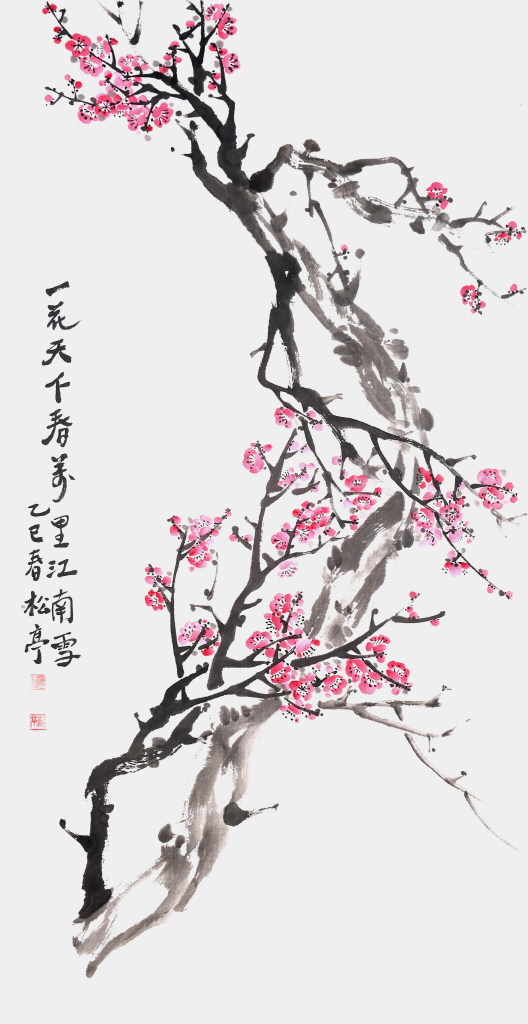 一花天下春万里江南雪
乙巳春松亭